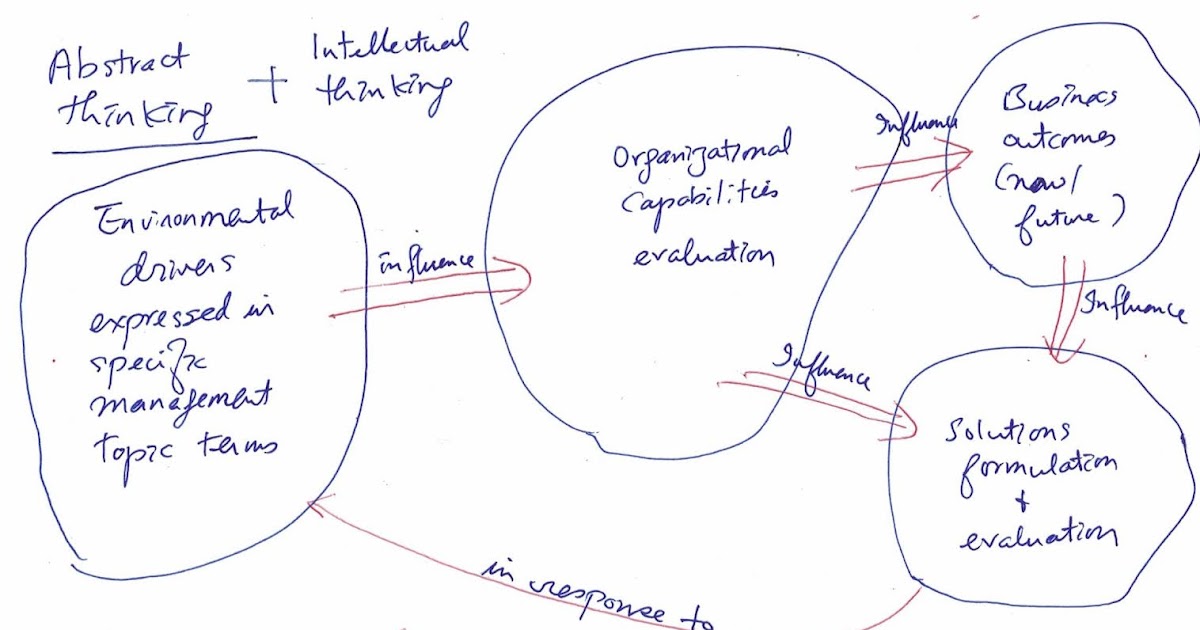 Abstract
thinking
+
Intellectual
thinking
Environmental
drivers
expressed in
specific
management
topic terms
influence
Organizational
Capabilities
evaluation
Influence
Business
outcomes
(now/
future)
Influence
Influence
Solutions
formulation
+
evaluation
in response to